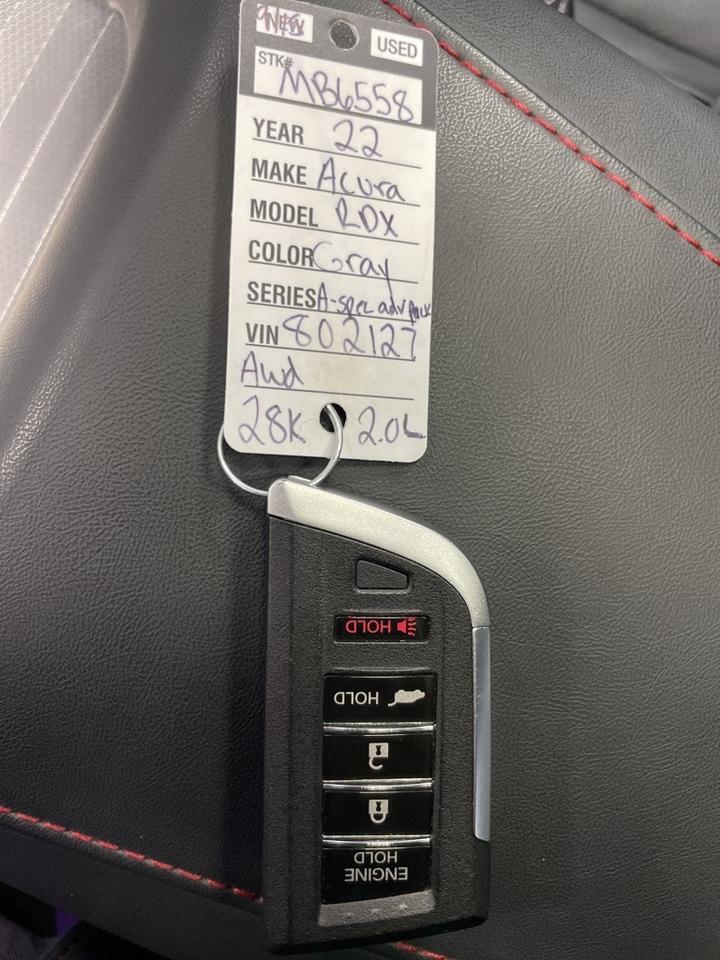 NEW USED
STK# MB6558
YEAR 22
MAKE Acura
MODEL RDX
COLOR Gray
SERIES A-spec adv Pack
VIN 802127
Awd
28K 2.0L
HOLD
HOLD
ENGINE
HOLD